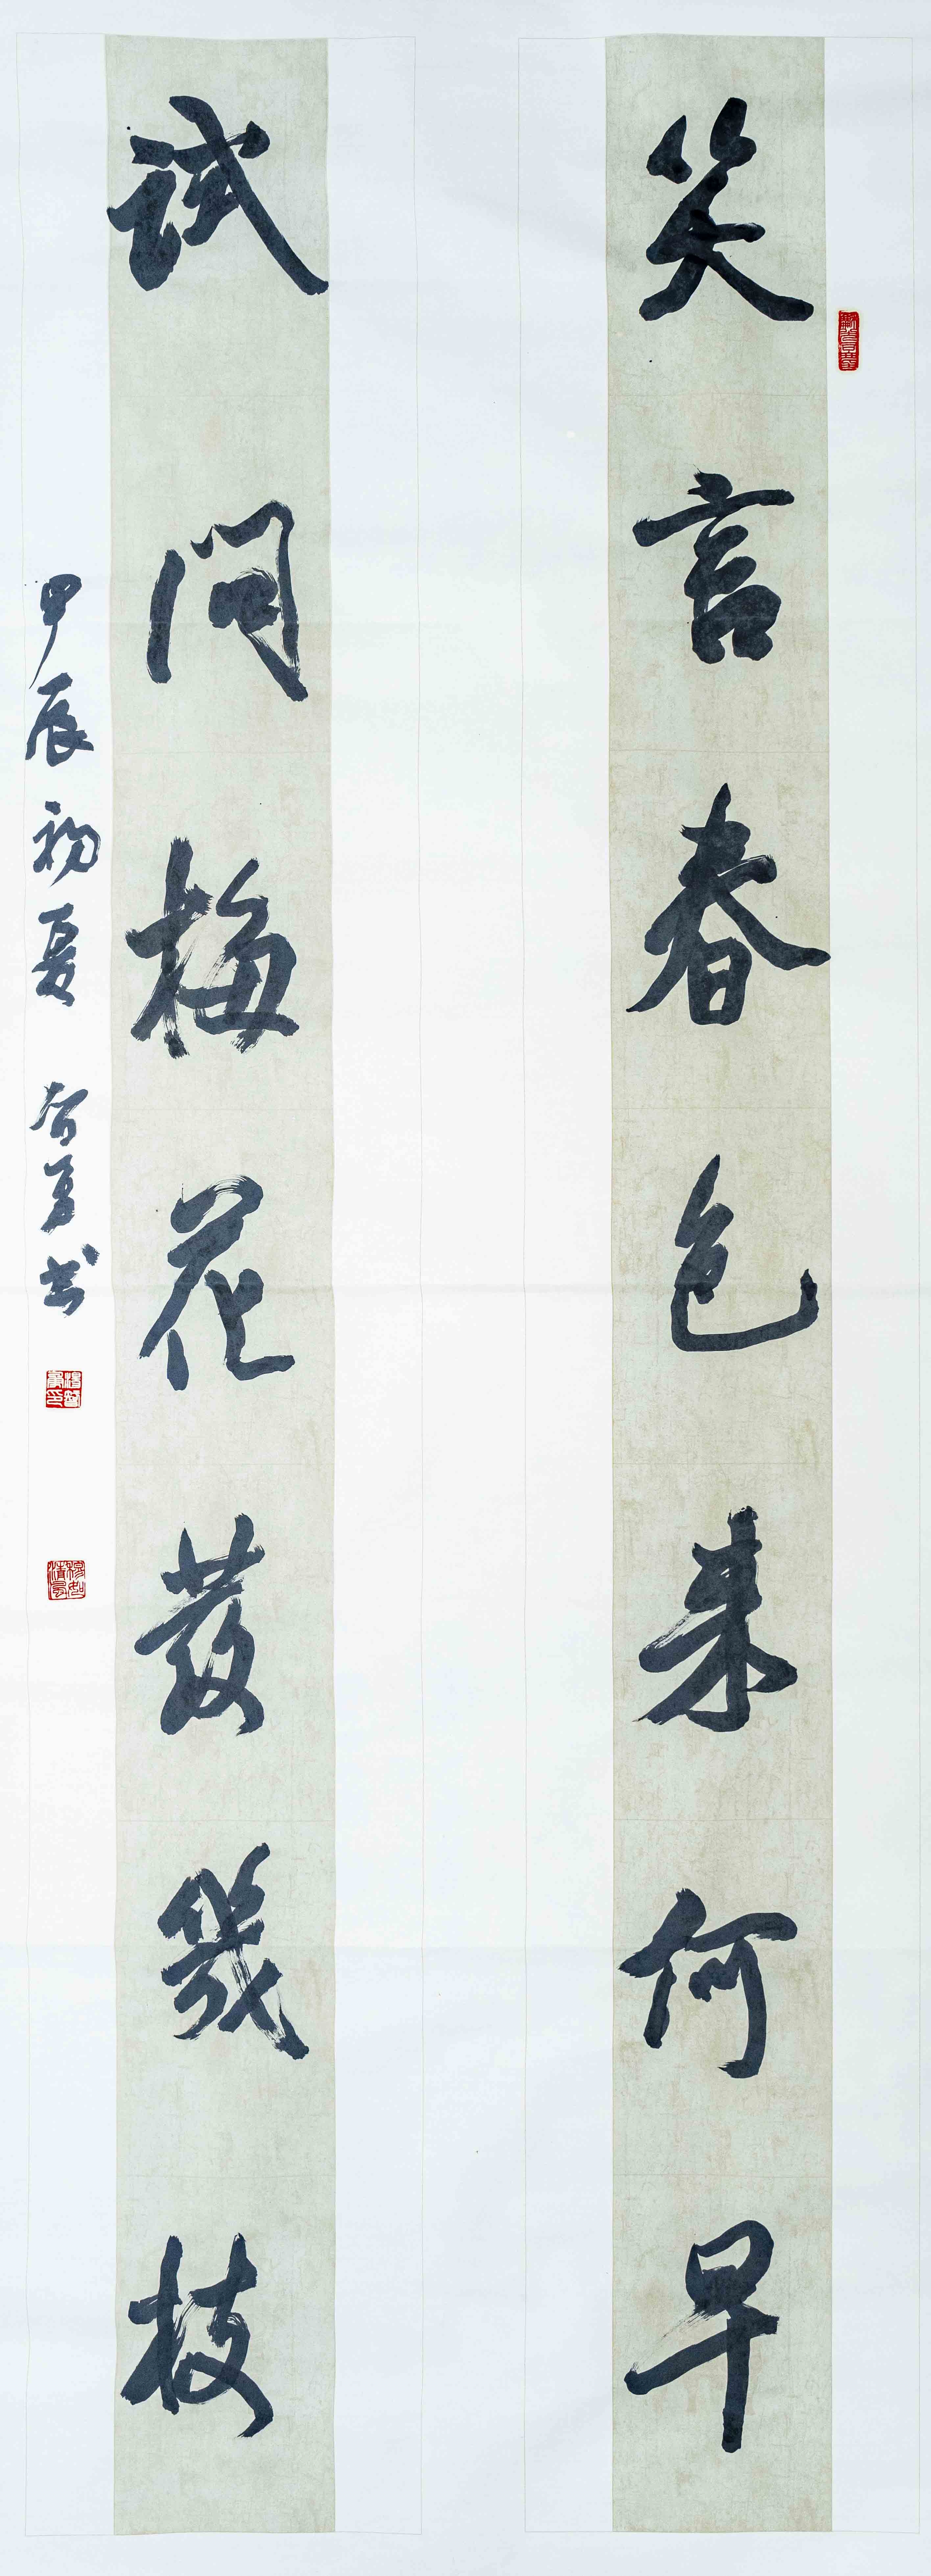 笑言春色来何早
试问梅花發幾枝
甲辰初夏 智勇书